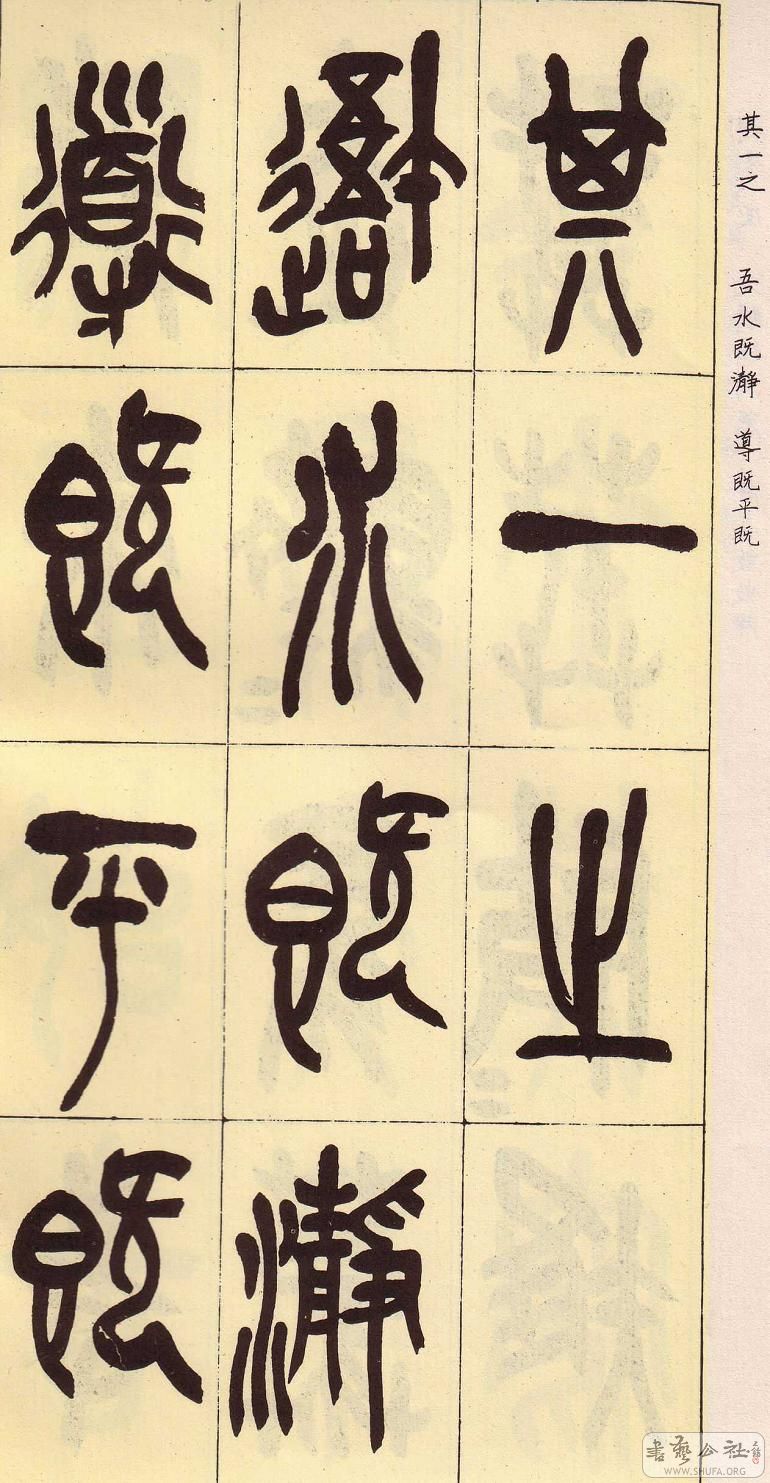 其一之　吾水既瀞　導既平既
其一之
䢩水既瀞
導既平既
書藝公社
WWW.SHUFA.ORG